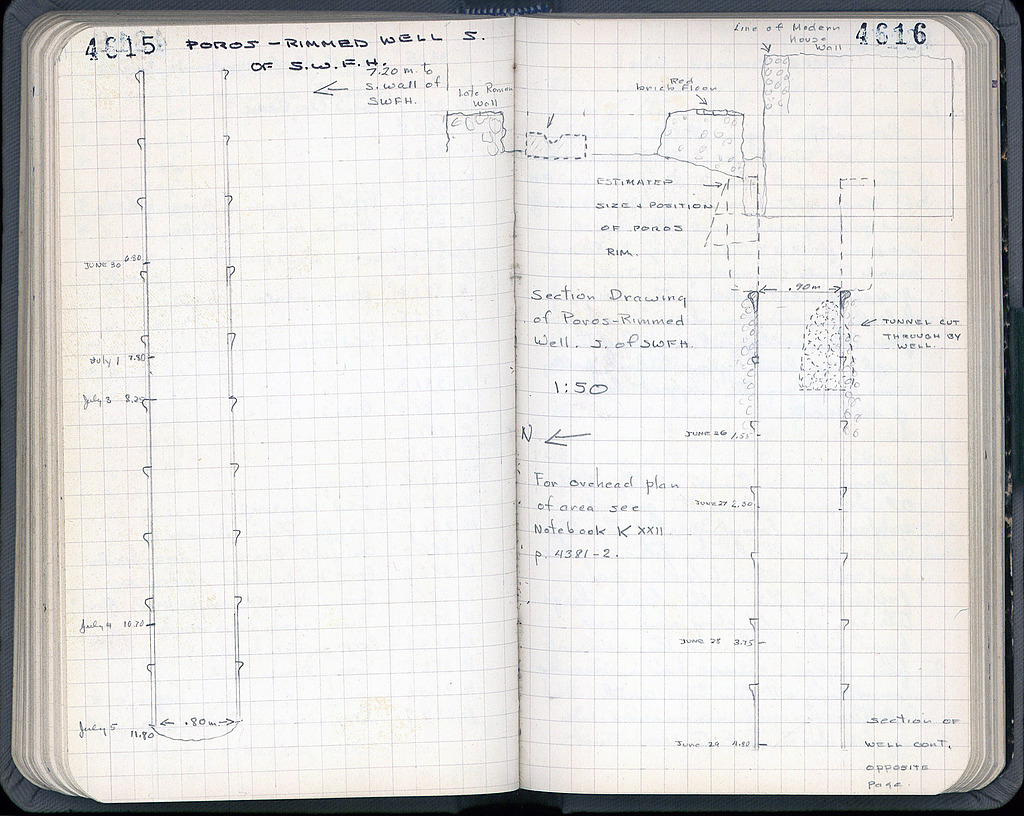 4615
POROS-RIMMED WELL S.
OF S.W.F.H.
7.20 m. to
S. wall of
SWFH.
Late Roman
Wall
JUNE 30 6.30
July 1 7.80
July 3 8.20
July 4 10.70
July 5 11.80
.80m
4616
Line of Modern
House
Wall
Red
brick Floor
ESTIMATED
SIZE & POSITION
OF POROS
RIM.
.90m
Section Drawing
of Poros-Rimmed
Well. S. of SWFH.
1:50
TUNNEL CUT
THROUGH BY
WELL.
N
JUNE 26 1.55
For overhead plan
of area see
Notebook K XXII
p. 4381-2.
JUNE 27 2.30
JUNE 28 3.75
June 29 4.80
Section OF
WELL CONT.
OPPOSITE
Page.